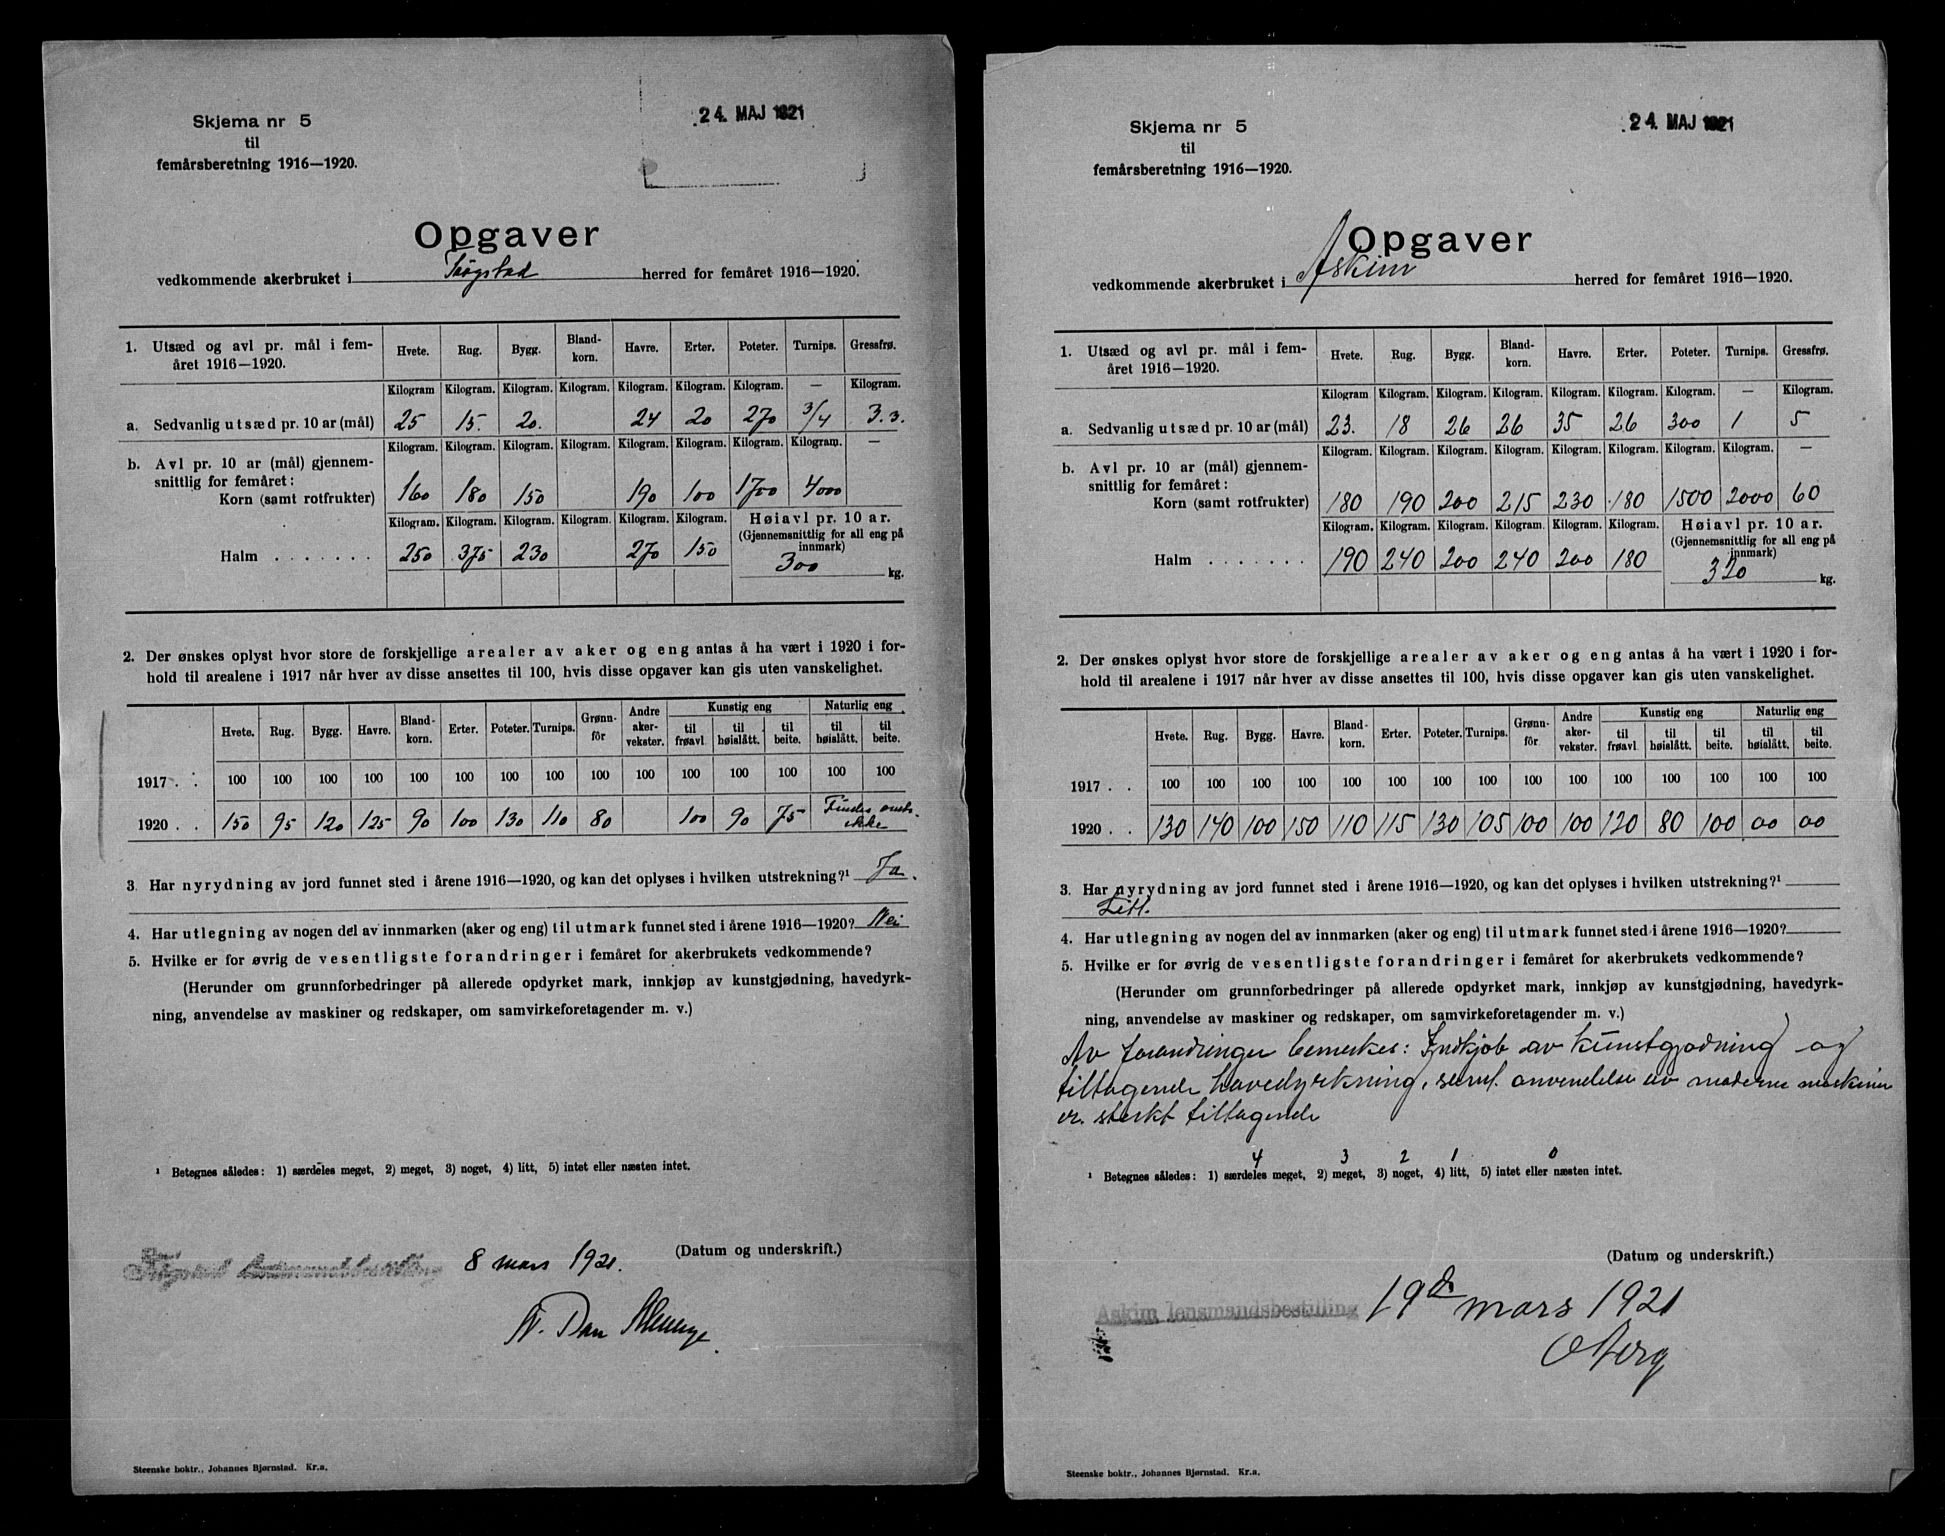 Skjema nr 5
til
femårsberetning 1916—1920.
24. MAJ 1921
Opgaver
vedkommende akerbruket i Trøgstad herred for femåret 1916—1920.
1. Utsæd og avl pr. mål i fem-
året 1916—1920.
Hvete. Rug. Bygg. Bland-korn. Havre. Erter. Poteter. Turnips. Gressfrø.
Kilogram Kilogram. Kilogram. Kilogram. Kilogram. Kilogram. Kilogram. — Kilogram.
a. Sedvanlig utsæd pr. 10 ar (mål) 25 15. 20. 24 20 270 3/4 3.3.
Kilogram. Kilogram. Kilogram. Kilogram. Kilogram. Kilogram. Kilogram. Kilogram. —
b. Avl pr. 10 ar (mål) gjennem-
snittlig for femåret:
Korn (samt rotfrukter) 160 180 150 190 100 1700 4000
Kilogram. Kilogram. Kilogram. Kilogram. Kilogram. Kilogram. Høiavl pr. 10 ar.
(Gjennemsnittlig for all eng på
innmark)
Halm . . . . . . . 250 375 230 270 150 300 kg.
2. Der ønskes oplyst hvor store de forskjellige arealer av aker og eng antas å ha vært i 1920 i for-
hold til arealene i 1917 når hver av disse ansettes til 100, hvis disse opgaver kan gis uten vanskelighet.
Hvete. Rug. Bygg. Havre. Bland-korn. Erter. Poteter. Turnips. Grønn-fôr Andre aker-vekster. Kunstig eng Naturlig eng
til frøavl til høislått. til beite. til høislått. til beite.
1917 . . 100 100 100 100 100 100 100 100 100 100 100 100 100 100 100
1920 . . 150 95 120 125 90 100 130 110 80 100 90 75 Findes
ikke
3. Har nyrydning av jord funnet sted i årene 1916—1920, og kan det oplyses i hvilken utstrekning?¹ Ja.
4. Har utlegning av nogen del av innmarken (aker og eng) til utmark funnet sted i årene 1916—1920? Nei
5. Hvilke er for øvrig de vesentligste forandringer i femåret for akerbrukets vedkommende?
(Herunder om grunnforbedringer på allerede opdyrket mark, innkjøp av kunstgjødning, havedyrk-
ning, anvendelse av maskiner og redskaper, om samvirkeforetagender m. v.)
¹ Betegnes således: 1) særdeles meget, 2) meget, 3) noget, 4) litt, 5) intet eller næsten intet.
(Datum og underskrift.)
Trøgstad Lensmandsbestilling 8 mars 1921.
Steenske boktr., Johannes Bjørnstad. Kr.a.
Skjema nr 5
til
femårsberetning 1916—1920.
24. MAJ 1921
Opgaver
vedkommende akerbruket i Askim herred for femåret 1916—1920.
1. Utsæd og avl pr. mål i fem-
året 1916—1920.
Hvete. Rug. Bygg. Bland-korn. Havre. Erter. Poteter. Turnips. Gressfrø.
Kilogram Kilogram. Kilogram. Kilogram. Kilogram. Kilogram. Kilogram. — Kilogram.
a. Sedvanlig utsæd pr. 10 ar (mål) 23. 18 26 26 35 26 300 1 5
Kilogram. Kilogram. Kilogram. Kilogram. Kilogram. Kilogram. Kilogram. Kilogram. —
b. Avl pr. 10 ar (mål) gjennem-
snittlig for femåret:
Korn (samt rotfrukter) 180 190 200 215 230 180 1500 2000 60
Kilogram. Kilogram. Kilogram. Kilogram. Kilogram. Kilogram. Høiavl pr. 10 ar.
(Gjennemsnittlig for all eng på
innmark)
Halm . . . . . . . 190 240 200 240 200 180 320 kg.
2. Der ønskes oplyst hvor store de forskjellige arealer av aker og eng antas å ha vært i 1920 i for-
hold til arealene i 1917 når hver av disse ansettes til 100, hvis disse opgaver kan gis uten vanskelighet.
Hvete. Rug. Bygg. Havre. Bland-korn. Erter. Poteter. Turnips. Grønn-fôr Andre aker-vekster. Kunstig eng Naturlig eng
til frøavl til høislått. til beite. til høislått. til beite.
1917 . . 100 100 100 100 100 100 100 100 100 100 100 100 100 100 100
1920 . . 130 140 100 150 110 115 130 105 100 100 120 80 100 00 00
3. Har nyrydning av jord funnet sted i årene 1916—1920, og kan det oplyses i hvilken utstrekning?¹
Litt.
4. Har utlegning av nogen del av innmarken (aker og eng) til utmark funnet sted i årene 1916—1920?
5. Hvilke er for øvrig de vesentligste forandringer i femåret for akerbrukets vedkommende?
(Herunder om grunnforbedringer på allerede opdyrket mark, innkjøp av kunstgjødning, havedyrk-
ning, anvendelse av maskiner og redskaper, om samvirkeforetagender m. v.)
Av forandringer bemerkes: Indkjøb av kunstgjødning og
tiltagende havedyrkning, samt anvendelse av moderne maskiner
er sterkt tiltagende
4 3 2 1 0
¹ Betegnes således: 1) særdeles meget, 2) meget, 3) noget, 4) litt, 5) intet eller næsten intet.
(Datum og underskrift.)
Askim lensmandsbestilling 19de mars 1921
Steenske boktr., Johannes Bjørnstad. Kr.a.